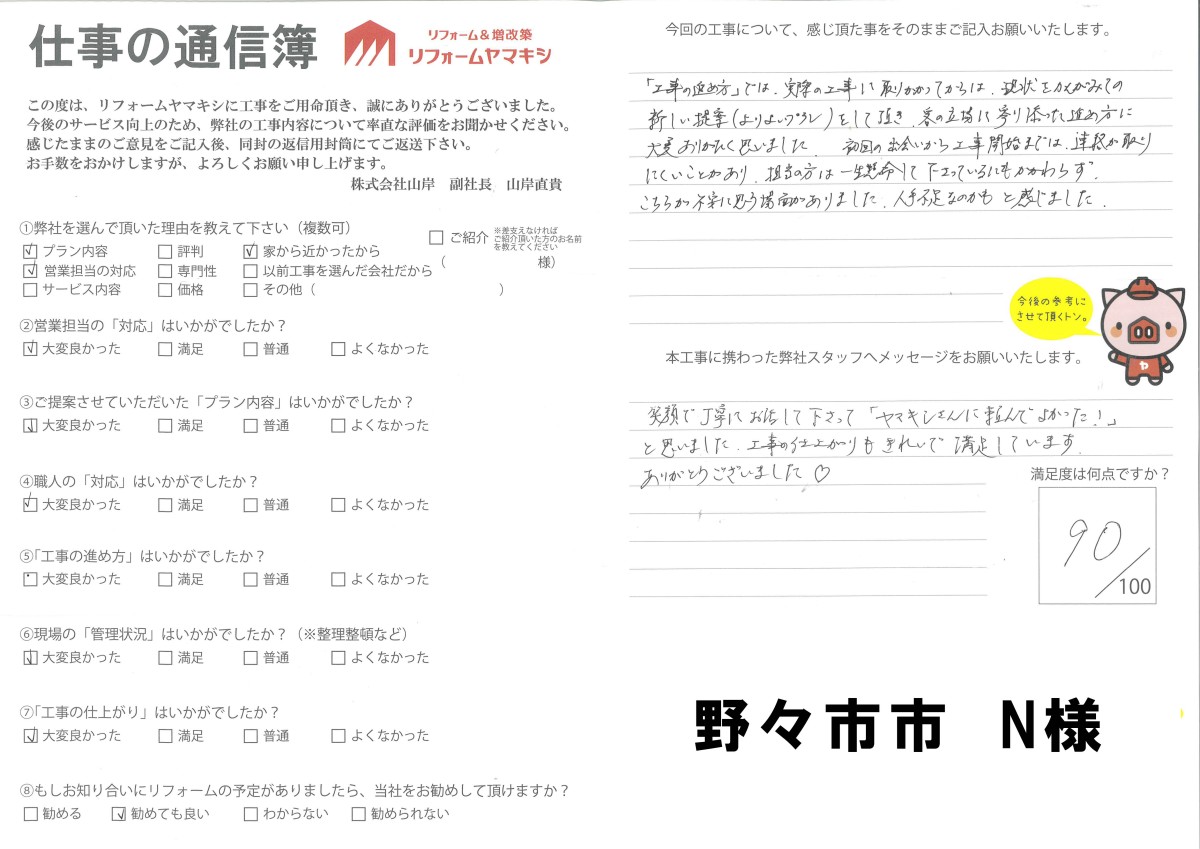 仕事の通信簿
リフォーム&増改築
リフォームヤマキシ
この度は、リフォームヤマキシに工事をご用命頂き、誠にありがとうございました。
今後のサービス向上のため、弊社の工事内容について率直な評価をお聞かせください。
感じたままのご意見をご記入後、同封の返信用封筒にてご返送下さい。
お手数をおかけしますが、よろしくお願い申し上げます。
株式会社山岸 副社長 山岸直貴
①弊社を選んで頂いた理由を教えて下さい（複数可）
☑プラン内容 □評判 ☑家から近かったから
☑営業担当の対応 □専門性 □以前工事を選んだ会社だから
□サービス内容 □価格 □その他（ ）
□ご紹介 ※差支えなければ
ご紹介頂いた方のお名前
を教えてください
（ 様）
②営業担当の「対応」はいかがでしたか？
☑大変良かった □満足 □普通 □よくなかった
③ご提案させていただいた「プラン内容」はいかがでしたか？
☑大変良かった □満足 □普通 □よくなかった
④職人の「対応」はいかがでしたか？
☑大変良かった □満足 □普通 □よくなかった
⑤「工事の進め方」はいかがでしたか？
□大変良かった □満足 □普通 □よくなかった
⑥現場の「管理状況」はいかがでしたか？（※整理整頓など）
☑大変良かった □満足 □普通 □よくなかった
⑦「工事の仕上がり」はいかがでしたか？
☑大変良かった □満足 □普通 □よくなかった
⑧もしお知り合いにリフォームの予定がありましたら、当社をお勧めして頂けますか？
□勧める ☑勧めても良い □わからない □勧められない
今回の工事について、感じ頂た事をそのままご記入お願いいたします。
「工事の進め方」では、実際の工事に取りかかってからは、現状をかんがみての
新しい提案(よりよいプラン)をして頂き、客の立場に寄り添った進め方に
大変ありがたく思いました。 初回の出会いから工事開始までは、連絡が取り
にくいことがあり、担当の方は一生懸命して下さっているにもかかわらず、
こちらが不安に思う場面がありました。人手不足なのかも と感じました。
今後の参考に
させて頂くトン。
ヤ
本工事に携わった弊社スタッフへメッセージをお願いいたします。
笑顔で丁寧にお話して下さって「ヤマキシさんに頼んでよかった！」
と思いました。工事の仕上がりもきれいで満足しています。
ありがとうございました♡
満足度は何点ですか？
90/100
野々市市 N様